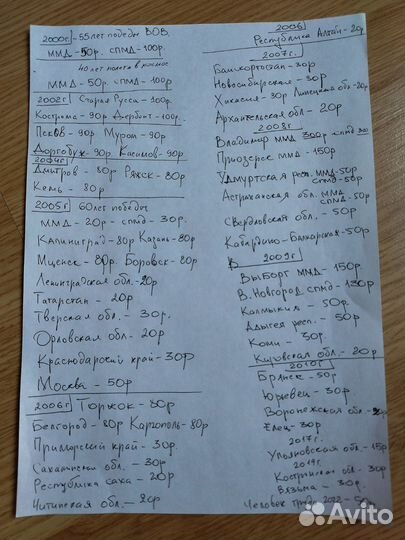 2000г. - 55лет победы ВОВ.
ММД - 50р. СПМД - 100р.
40 лет полета в космос
ММД - 50р. СПМД - 100р
2002г Старая Русса - 100р.
Кострома - 90р Дербент - 100р.
Псков - 90р Муром - 90р
Дорогобуж - 90р Касимов - 90р
2004г
Дмитров - 80р Ряжск - 80р.
Кемь - 80р
2005г 60лет победы
ММД - 20р - спмд - 30р.
Калининград - 80р Казань - 80р
Мценск - 80р. Боровск - 80р
Ленинградская обл. - 20р
Татарстан - 20р
Тверская обл. - 30р
Орловская обл - 20р
Краснодарский край - 30р
Москва - 50р
2006г Торжок - 80р
Белгород - 80р Каргополь - 80р
Приморский край - 30р.
Сахалинская обл. - 30р
Республика саха - 20р
Читинская обл. - 20р
2006
Республика Алтай - 20р
2007г.
Башкортостан - 30р
Новосибирская - 30р
Хакасия - 30р Липецкая обл - 20р
Архангельская обл - 20р
2008г
Владимир ММД 300р спмд 300
Приозерск ММД - 150р
Удмуртская респ. ММД - 50р
спмд - 50р
Астраханская обл. ММД
спмд - 50р
Свердловская обл. - 50р
Кабардино-Балкарская - 50р
2009г
Выборг ММД - 150р
В. Новгород спмд - 130р
Калмыкия - 50р
Адыгея респ. - 50р
Коми - 30р
Кировская обл. - 20р
2010г
Брянск - 50р
Юрьевец - 30р
Воронежская обл - 20р
Елец - 30р
2017г.
Ульяновская обл. - 15р
2019г.
Костромская обл. - 30р
Вязьма - 30р
Человек труда 2022 -
Avito